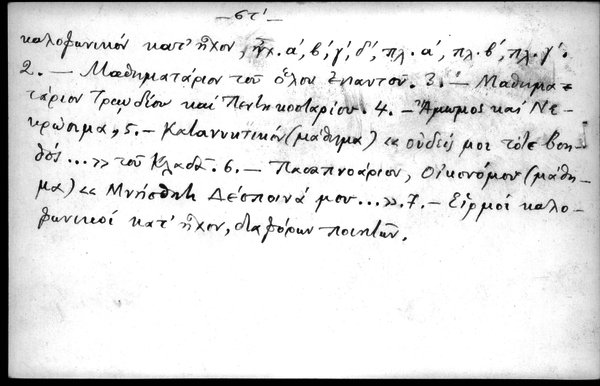 — στ' —
καλοφωνικόν κατ' ἦχον, ἦχ. α', β', γ', δ', πλ. α', πλ. β', πλ. γ'.
2. — Μαθηματάριον τοῦ ὅλου ἐνιαυτοῦ. 3. — Μαθημα-
τάριον Τριῳδίου καί Πεντηκοσταρίου. 4. — Ἄμωμος καί Νε-
κρώσιμα, 5. — Κατανυκτικόν (μάθημα) « οὐδείς μοι τότε βοη-
θός... » τοῦ Κλαδᾶ. 6. — Πασαπνοάριον, Οἰκονόμου (μάθη-
μα) « Μνήσθητι Δέσποινά μου... ». 7. — Εἱρμοί καλο-
φωνικοί κατ' ἦχον, διαφόρων ποιητῶν.